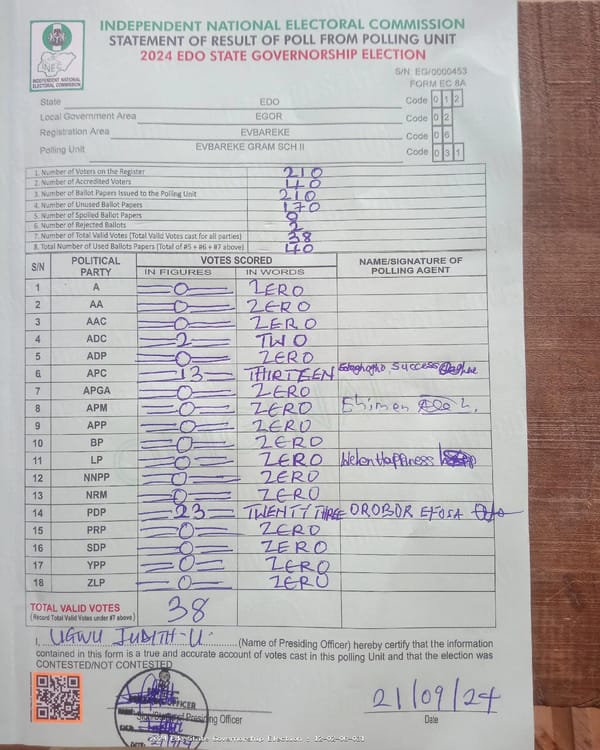 INDEPENDENT NATIONAL ELECTORAL COMMISSION
STATEMENT OF RESULT OF POLL FROM POLLING UNIT
2024 EDO STATE GOVERNORSHIP ELECTION
INDEPENDENT NATIONAL ELECTORAL COMMISSION
S/N: EG/0000453
FORM EC 8A
State EDO Code 0 1 2
Local Government Area EGOR Code 0 2
Registration Area EVBAREKE Code 0 6
Polling Unit EVBAREKE GRAM SCH II Code 0 3 1
1. Number of Voters on the Register 210
2. Number of Accredited Voters 40
3. Number of Ballot Papers Issued to the Polling Unit 210
4. Number of Unused Ballot Papers 170
5. Number of Spoiled Ballot Papers 0
6. Number of Rejected Ballots 2
7. Number of Total Valid Votes (Total Valid Votes cast for all parties) 38
8. Total Number of Used Ballots Papers (Total of #5 + #6 + #7 above) 40
S/N POLITICAL PARTY VOTES SCORED NAME/SIGNATURE OF POLLING AGENT
IN FIGURES IN WORDS
1 A 0 ZERO
2 AA 0 ZERO
3 AAC 0 ZERO
4 ADC 2 TWO
5 ADP 0 ZERO
6 APC 13 THIRTEEN Success
7 APGA 0 ZERO
8 APM 0 ZERO
9 APP 0 ZERO
10 BP 0 ZERO
11 LP 0 ZERO Helen Happiness
12 NNPP 0 ZERO
13 NRM 0 ZERO
14 PDP 23 TWENTY THREE OROBOR EFOSA
15 PRP 0 ZERO
16 SDP 0 ZERO
17 YPP 0 ZERO
18 ZLP 0 ZERO
TOTAL VALID VOTES 38
(Record Total Valid Votes under #7 above)
I, UGWU JUDITH-U. (Name of Presiding Officer) hereby certify that the information
contained in this form is a true and accurate account of votes cast in this polling Unit and that the election was
CONTESTED/NOT CONTESTED
21/09/24
Presiding Officer Date
2024 Edo State Governorship Election - 12-02-06-031